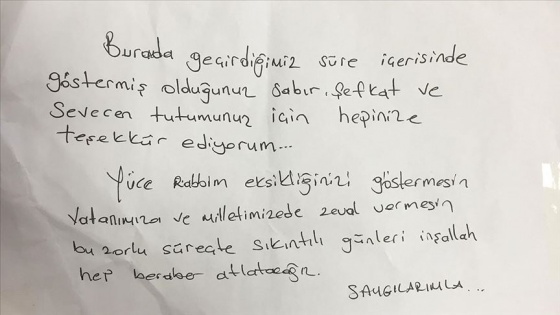 Burada geçirdiğimiz süre içerisinde
göstermiş olduğunuz sabır, şefkat ve
Sevecen tutumunuz için hepinize
teşekkür ediyorum...
Yüce Rabbim eksikliğinizi göstermesin
Vatanımıza ve milletimizede zeval vermesin
bu zorlu süreçte sıkıntılı günleri inşallah
hep beraber atlatacağız.
SAYGILARIMLA...